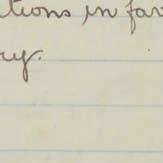 tions in fav
ry.